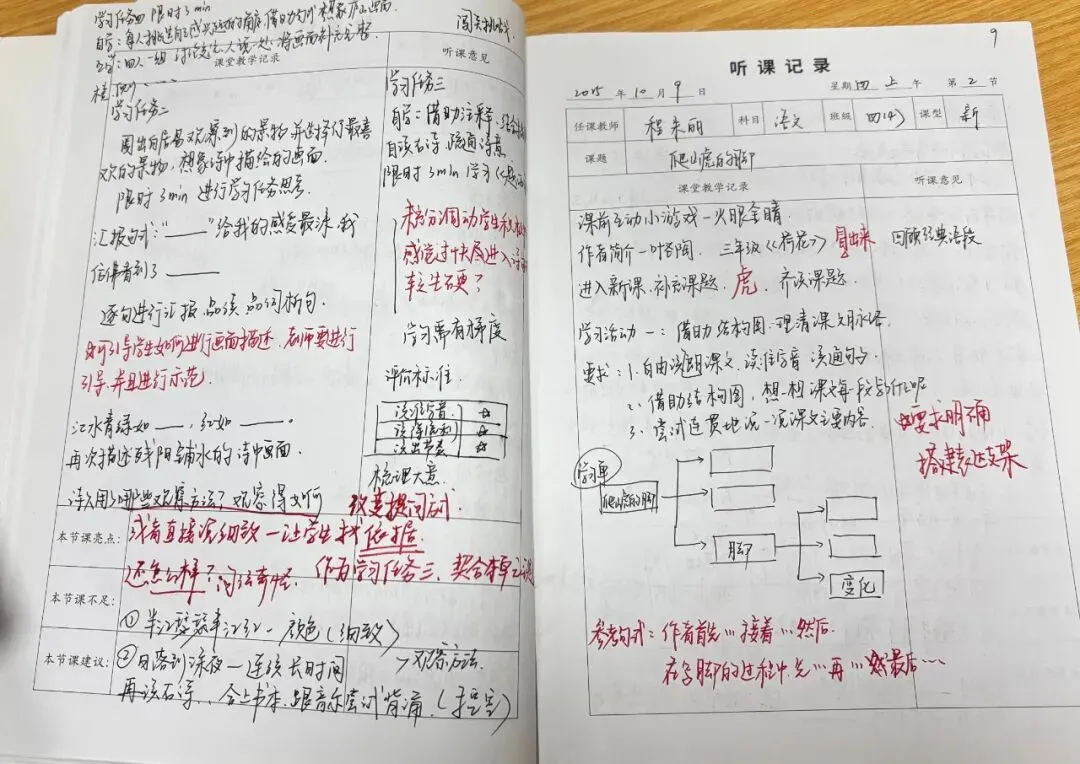 学习任务四 限时3min
闯关挑战
自学：每人挑选自己感兴趣的角度，借助句式想象画面
四人一组
课堂教学记录
听课意见
学习任务二
圈出自居易观察到的景物，并选择你最喜
欢的景物，想象诗中描绘的画面
限时3min 进行学习任务思考
汇报句式："____"给我的感受最深，我
仿佛看到了____
逐句进行汇报，品读，品词析句
如何引导学生如何进行画面描述，教师要进行
引导，并且进行示范
江水青绿如____，红如____。
再次描述残阳铺水的诗中画面
诗人用了哪些观察方法？观察得如何
学习任务三
自学：借助注释，结合
自读右诗，疏通诗意
限时3min 学习
充分调动学生
感觉过快进入
学习需有梯度
评价标准
读准字音 ☆
☆
读出节奏 ☆
梳理大意
改变提问方式
本节课亮点：
或者直接说细致一让学生找依据
还怎么样？问法奇怪。 作为学习任务三，契合本单元
本节课不足：
① 半江瑟瑟半江红一颜色（细致）
本节课建议：
②日落到深夜一连续长时间
>观察方法
再读古诗，合上书本，跟音乐尝试背诵。
9
听课记录
2015年10月9日 星期四 上午 第2节
任课教师 程来丽 科目 语文 班级 四(4) 课型 新
课题 爬山虎的脚
课堂教学记录
听课意见
课前互动小游戏一火眼金睛
作者简介一叶圣陶 三年级《荷花》 冒出来 回顾经典语段
进入新课，补充课题，虎 齐读课题
学习活动一：借助结构图，理清课文脉络
要求：1.自由朗读课文，读准字音 读通句子
2、借助结构图，想一想课文每一段写什么呢
3、尝试连贯地说一说课文主要内容
要求明确
搭建表达支架
学习单
爬山虎的脚
脚
变化
参考句式：作者首先…接着…然后
在写脚的过程中先…再…最后…